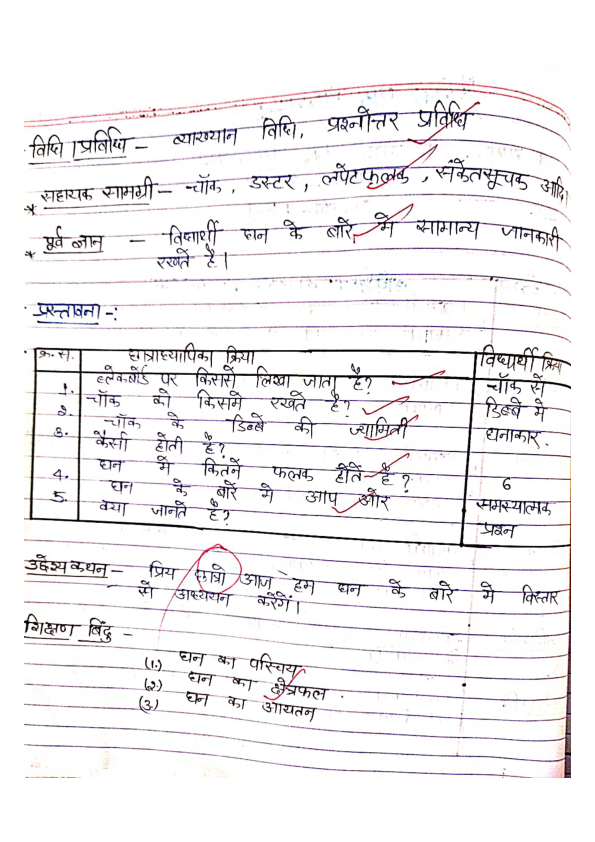 विधि / प्रविधि – व्याख्यान विधि, प्रश्नोत्तर प्रविधि
* सहायक सामग्री – चॉक, डस्टर, लपेटफलक, संकेतसूचक आदि।
* पूर्व ज्ञान – विद्यार्थी घन के बारे में सामान्य जानकारी
रखते है।
प्रस्तावना -:
क्र.सं. छात्राध्यापिका क्रिया विद्यार्थी क्रिया
1. ब्लेकबोर्ड पर किससे लिखा जाता है? चॉक से
2. चॉक को किसमे रखते है? डिब्बे मे
3. चॉक के डिब्बे की ज्यामिती घनाकार.
कैसी होती है?
4. घन मे कितने फलक होते है? 6
5. घन के बारे मे आप और समस्यात्मक
क्या जानते है? प्रश्न
उद्देश्य कथन – प्रिय छात्रो आज हम घन के बारे मे विस्तार
से अध्ययन करेगें।
शिक्षण बिंदु –
(1.) घन का परिचय
(2) घन का क्षेत्रफल.
(3) घन का आयतन